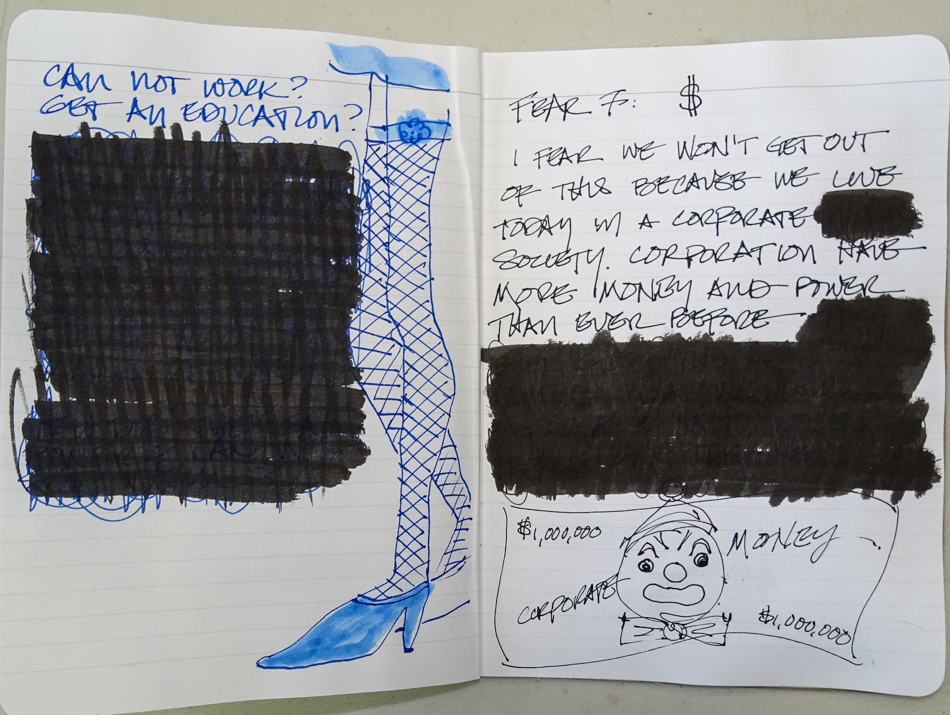 CAN NOT WORK?
GET AN EDUCATION?
FEAR 7: $
I FEAR WE WON'T GET OUT
OF THIS BECAUSE WE LIVE
TODAY IN A CORPORATE
SOCIETY. CORPORATION HAVE
MORE MONEY AND POWER
THAN EVER BEFORE
$1,000,000
MONEY
CORPORATE
$1,000,000